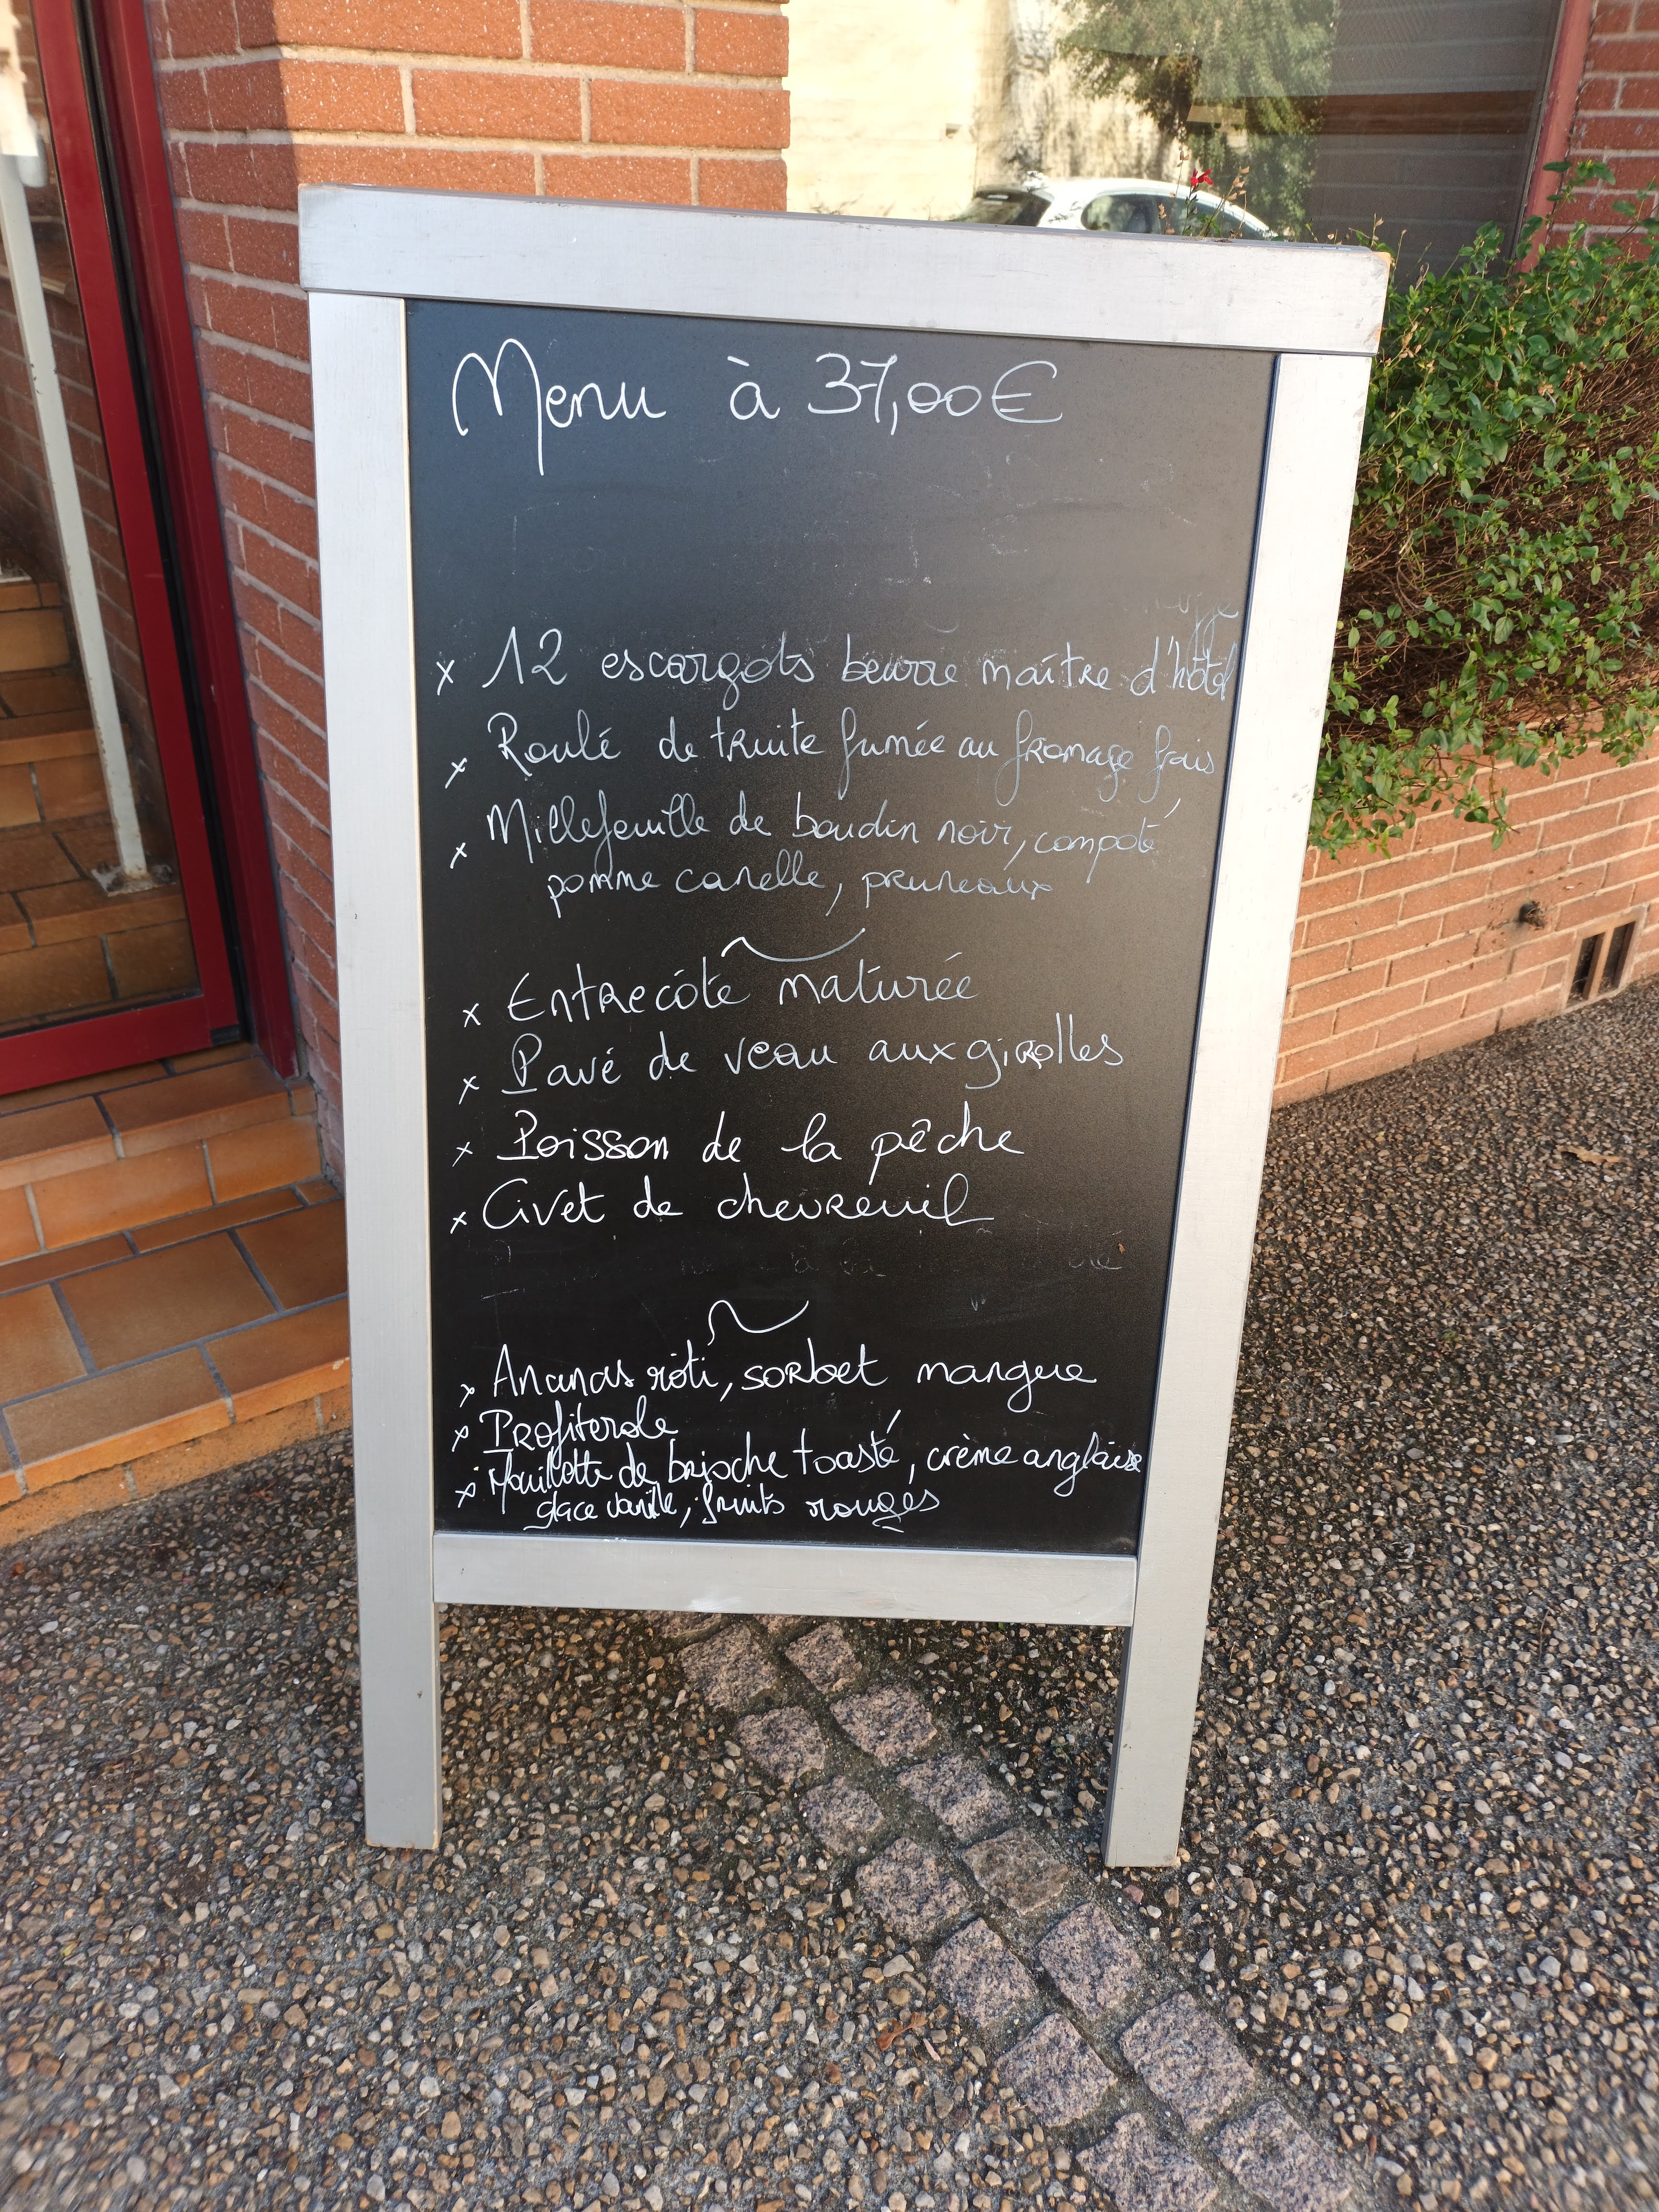 Menu à 37,00€
x 12 escargots beurre maître d'hôtel
x Roulé de truite fumée au fromage frais
x Millefeuille de boudin noir, compoté
pomme canelle, pruneaux
x Entrecôte maturée
x Pavé de veau aux girolles
x Poisson de la pêche
x Civet de chevreuil
x Ananas rôti, sorbet mangue
x Profiterole
x Mouillette de brioche toasté, crème anglaise
glace vanille, fruits rouges